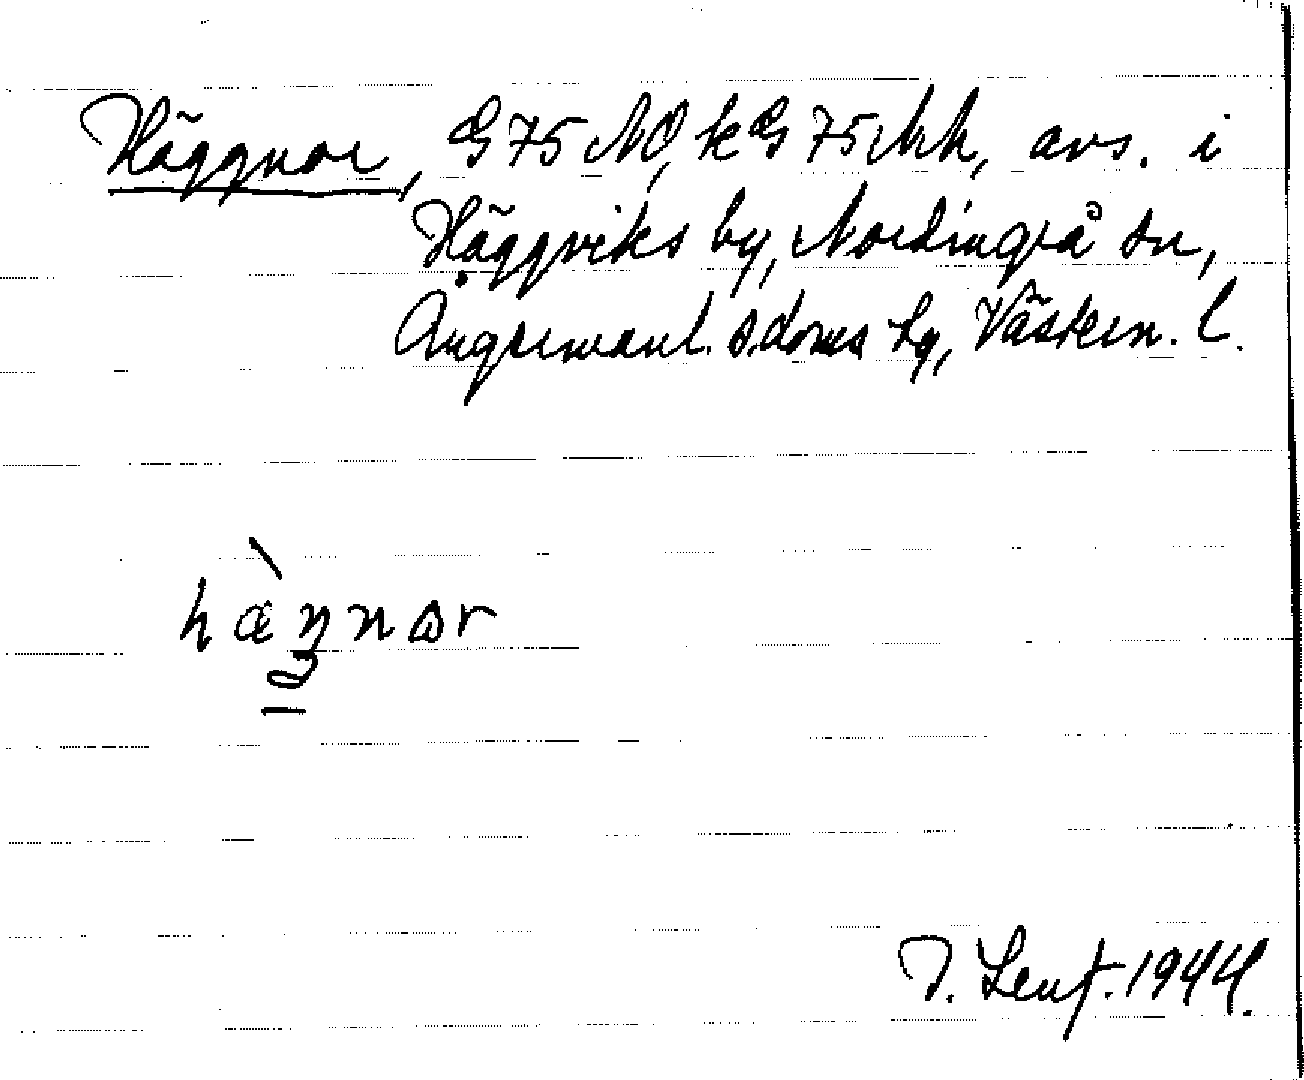 Häggnor, G 75 NO, kG 75 NN, avs. i
Häggviks by, Nordingrå sn,
Ångermanl. s. doms Lg, Västern. l.
hæ̀ŋnar
J. Lenf. 1944.